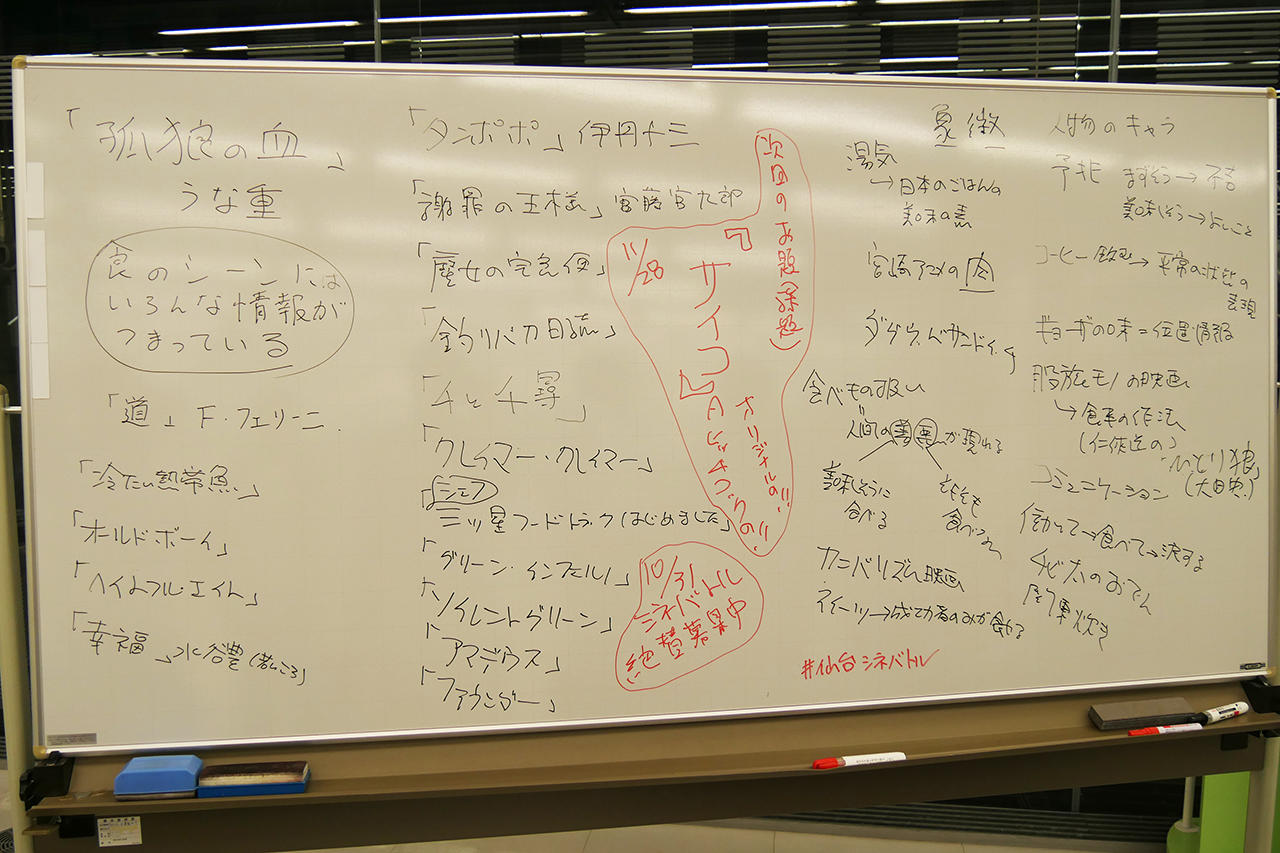 「孤狼の血」
うな重
食のシーンには
いろんな情報が
つまっている
「道」 F・フェリーニ
「冷たい熱帯魚」
「オールドボーイ」
「ヘイトフル・エイト」
「幸福」水谷豊(若いころ)
「タンポポ」伊丹十三
「謝罪の王様」宮藤官九郎
「魔女の宅急便」
「釣りバカ日誌」
「千と千尋」
「クレイマー・クレイマー」
「シェフ
三ツ星フードトラックはじめました」
「グリーン・インフェルノ」
「ソイレントグリーン」
「アマデウス」
「ファウンダー」
次回のお題(課題)
11/28
『サイコ』
A・ヒッチコックの!!
オリジナルの!!
10/31
シネバトル
絶賛募集中
象徴
湯気
→日本のごはんの
美味の素
宮崎アニメの肉
ダグウッドサンドイッチ
食べもの扱い
人間の善悪が現れる
美味しそうに
食べる
食べつつ
カニバリズム映画
スイーツ→成功者のみが食れる
#仙台シネバトル
人物のキャラ
予兆 まずそう→不吉
美味しそう→よいこと
コーヒー飲む→平常の状態の
表現
ギョーザの味=位置情報
股旅モノの映画
→食事の作法
(仁侠道の)
「ひとり狼」
(大田忠)
コミュニケーション
働かせて→食べて→決する
チビ太のおでん
闇鍋 炊き